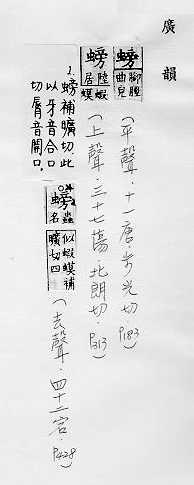 廣韻
螃 腳脛曲皃
(平聲．十一唐．步光切 P183)
螃 蟆陸居蝦
(上聲．三十七蕩．北朗切．P313)
1.螃補曠切此
以牙音合口
切脣音開口，
螃 蟲名似蝦蟆補曠切四
(去聲．四十二宕．P428)